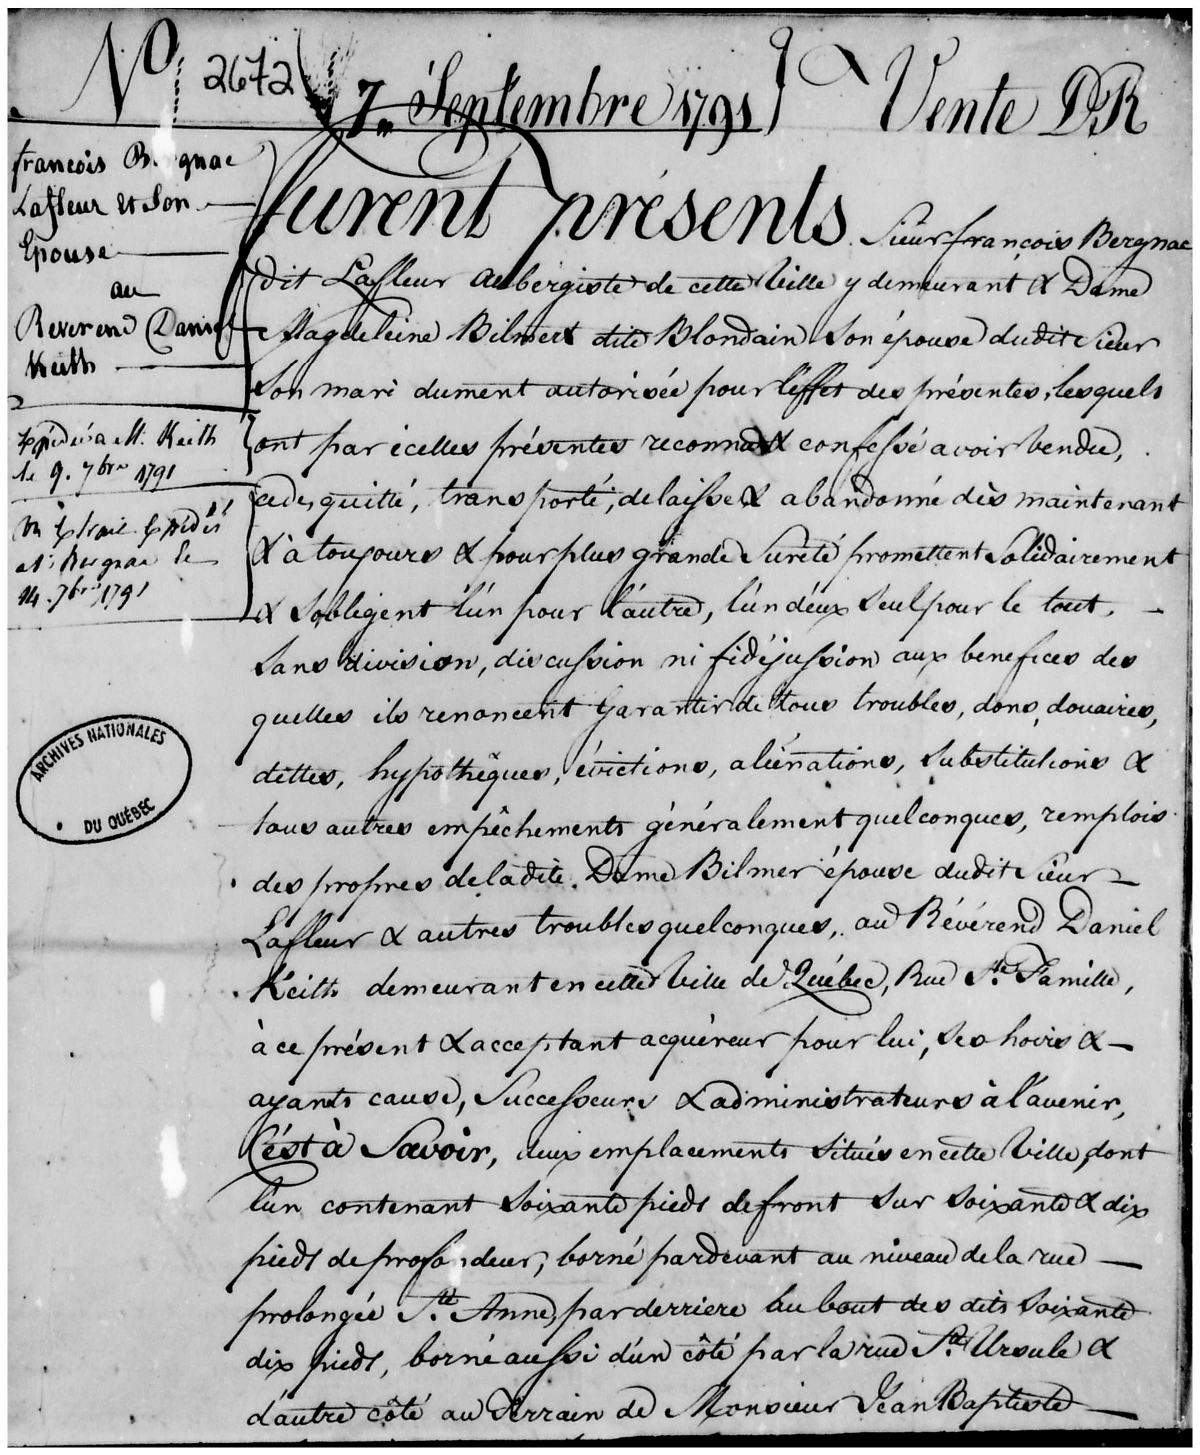 No. 2672
7. Septembre 1791
Vente DR
françois Bergnac
Lafleur et Son
Epouse
au
Reverend Daniel
Keith
Expédié a M. Keith
le 9. 7bre 1791
Un Extrait Expédié
a Sr. Bergnac le
14. 7bre 1791
ARCHIVES NATIONALES
DU QUÉBEC
furent présents Sieur françois Bergnac
dit Lafleur aubergiste de cette Ville y demeurant & Dame
Magdeleine Bilmert dite Blondain Son épouse dudit Sieur
Son mari dument autorisée pour l'éffet des présentes, lesquels
ont par icelles présentes reconnus & confessé avoir Vendu,
cedé, quitté, transporté, delaissé & abandonné dès maintenant
& à toujours & pour plus grande Sureté promettent Solidairement
& S'obligent l'ún pour l'áutre, l'ún d'éux Seul pour le tout,
Sans division, discussion ni fidéjussion aux benefices des
quelles ils renoncent Garantir de tous troubles, dons, douaires,
dettes, hypothêques, évictions, aliénations, Substitutions &
tous autres empêchements généralement quelconques, remplois
des propres de ladite Dame Bilmer épouse dudit Sieur
Lafleur & autres troubles quelconques, au Révérend Daniel
Keith demeurant en cette Ville de Québec, Rue Ste. Famille,
à ce présent & acceptant acquéreur pour lui, Ses hoirs &
ayants cause, Successeurs & administrateurs à l'avenir,
C'ést à Savoir, deux emplacements Situés en cette Ville, dont
l'ún contenant Soixante pieds de front Sur Soixante & dix
pieds de profondeur, borné pardevant au niveau de la rue
prolongée Ste. Anne, par derriere au bout des dits Soixante
dix pieds, borné aussi d'ún côté par la rue Ste. Ursule &
d'autre côté au Terrain de Monsieur Jean Baptiste